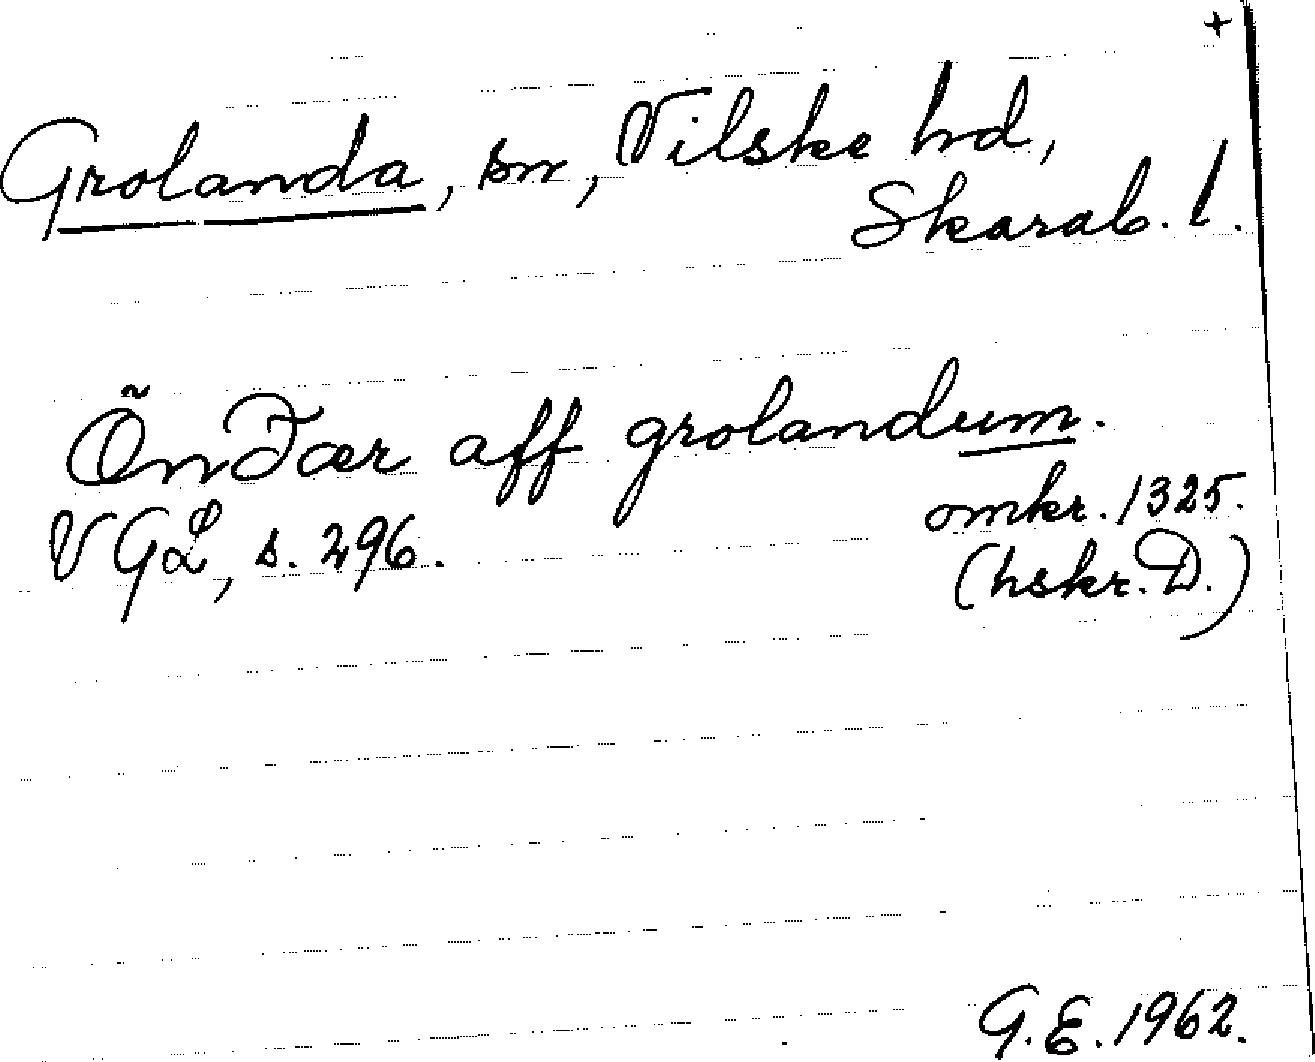 +
Grolanda, sn, Vilske hd,
Skarab. l.
Õndær aff grolandum.
omkr. 1325.
VGL, s. 296.
(hskr. D.)
G.E. 1962.